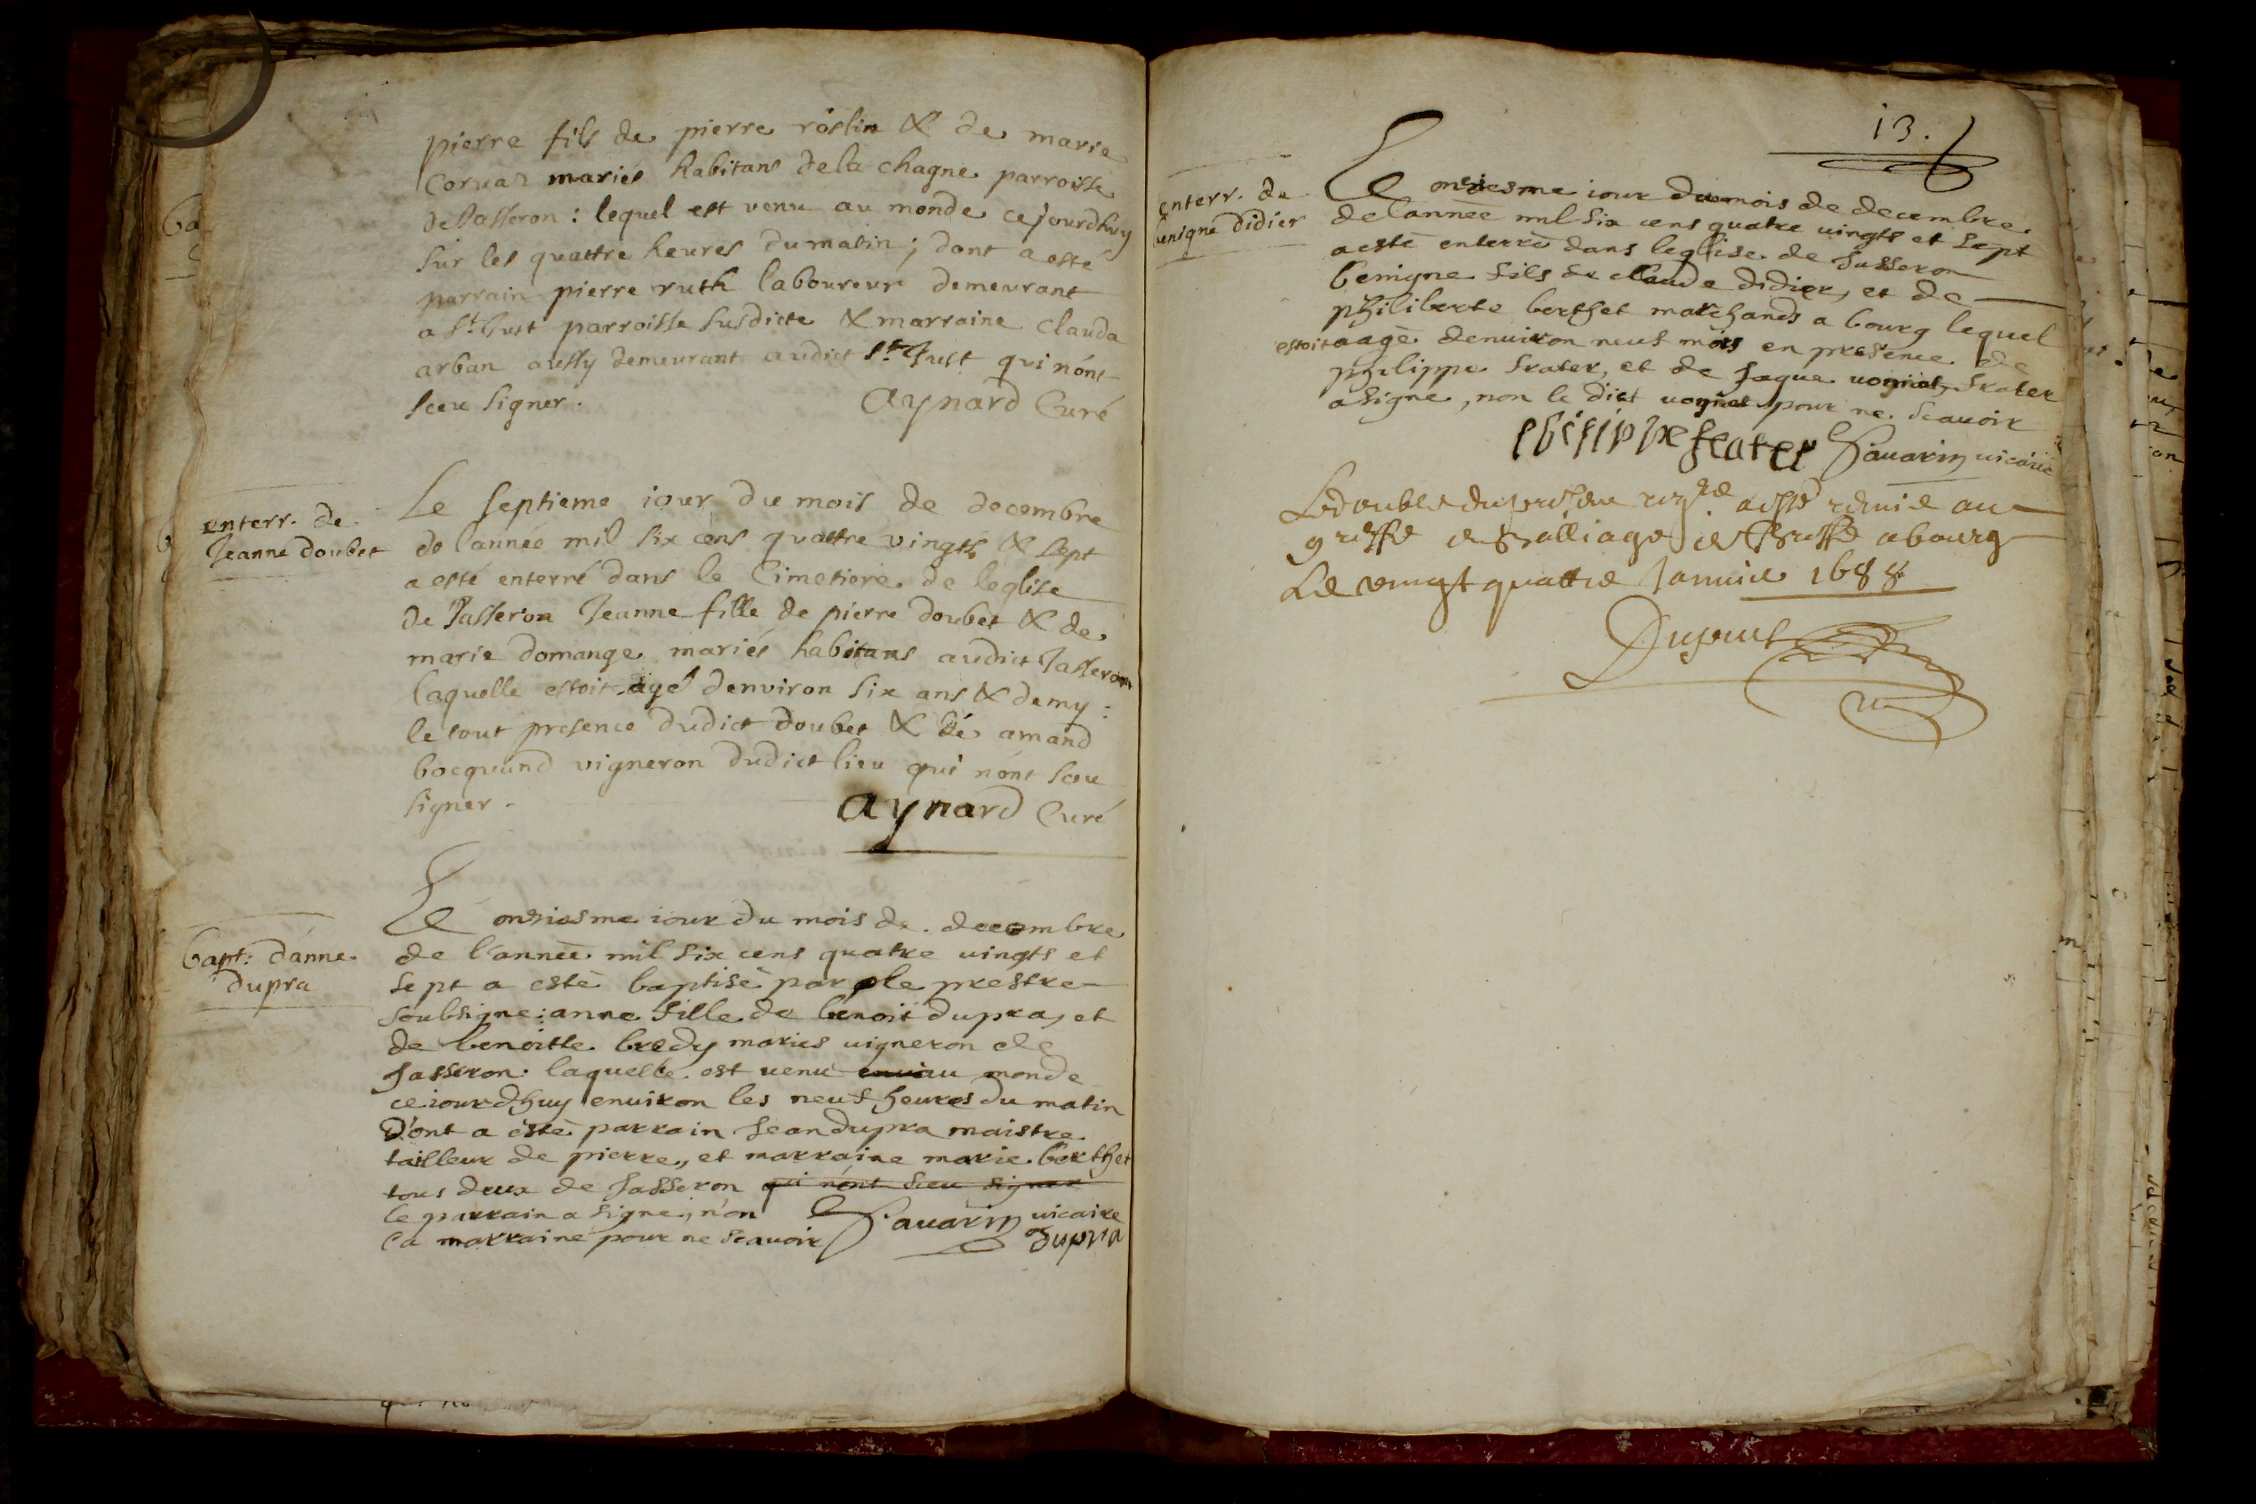 pierre fils de pierre roslin & de marie
Corvaz mariés habitans de la chagne parroisse
de Jasseron : lequel est venu au monde cejourdhuy
sur les quattre heures du matin ; dont a esté
parrain pierre ruth laboureur demeurant
a St. Just parroisse susdicte & marraine clauda
arban aussy demeurant audict St. Just qui nónt
sceu signer.
Aynard Curé
enterr. de
Jeanne doubet
Le septieme iour du mois de decembre
de lannée mil six cens quattre vingts & sept
a esté enterré dans le Cimetiere de leglise
de Jasseron Jeanne fille de pierre doubet & de
marie domange mariés habitans audict Jasseron
laquelle estoit agé denviron six ans & demy :
le tout presence dudict doubet & dé amand
bocquand vigneron dudict lieu qui nónt sceu
signer.
Aynard Curé
bapt: d'anne
dupra
Le onziesme iour du mois de decembre
de l'année mil six cens quatre vingts et
sept a esté baptisé par le prestre
soubsigne : anne fille de benoit dupra, et
de benoitte bredy maries vigneron de
Jasseron laquelle est venu au monde
ce iourdhuy enuiron les neuf heures du matin
Dont a esté parrain Jean dupra maistre
tailleur de pierre, et marraine marie berthet
tous deux de Jasseron qui nónt sceu signer
le parrain a signe, non
la marraine pour ne scauoir
Sauarin vicaire
dupra
13.
enterr. de
benigne didier
Le onziesme iour du mois de decembre
de lannée mil six cens quatre vingts et sept
a esté enterré dans leglise de Jasseron
benigne fils de claude didier, et de
philiberte berthet marchands a bourg lequel
estoit aagé denuiron neuf mois en presence de
philippe frater, et de Jaque frater
a signe, non le dict pour ne scauoir
philippe frater
Sauarin vicaire
Le double du a esté remis au
greffe Balliage de Bresse a bourg
Le vingt quattre Januier 1688